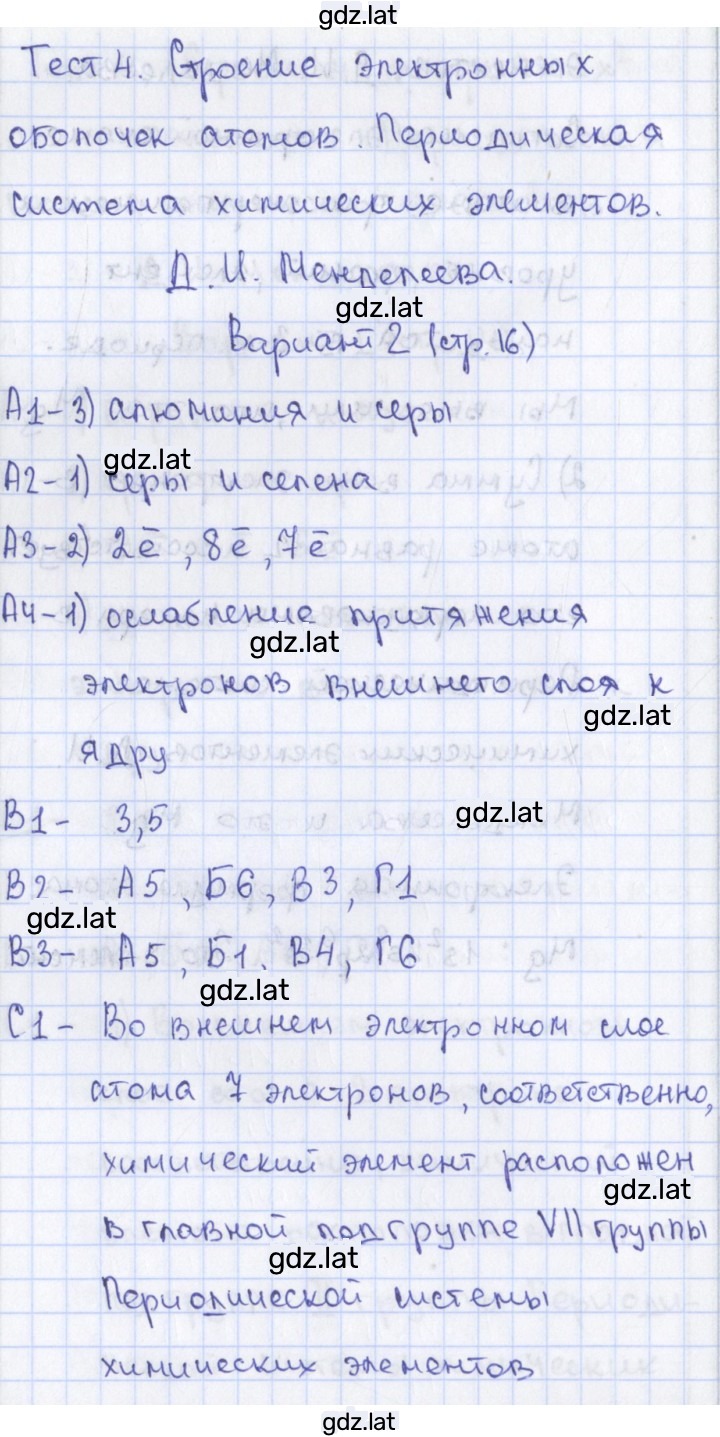 gdz.lat
Тест 4. Строение электронных
оболочек атомов. Периодическая
система химических элементов.
Д.И. Менделеева.
gdz.lat
Вариант 2 (стр.16)
А1-3) алюминия и серы
gdz.lat
А2-1) серы и селена
А3-2) 2ē, 8ē, 7ē
А4-1) ослабление притяжения
gdz.lat
электронов внешнего слоя к
gdz.lat
ядру
В1- 3,5
gdz.lat
В2- А5, Б6, В3, Г1
gdz.lat
В3- А5, Б1. В4, Г6
gdz.lat
С1- Во внешнем электронном слое
атома 7 электронов, соответственно,
химический элемент расположен
gdz.lat
в главной подгруппе VII группы
gdz.lat
Периодической системы
химических элементов
gdz.lat